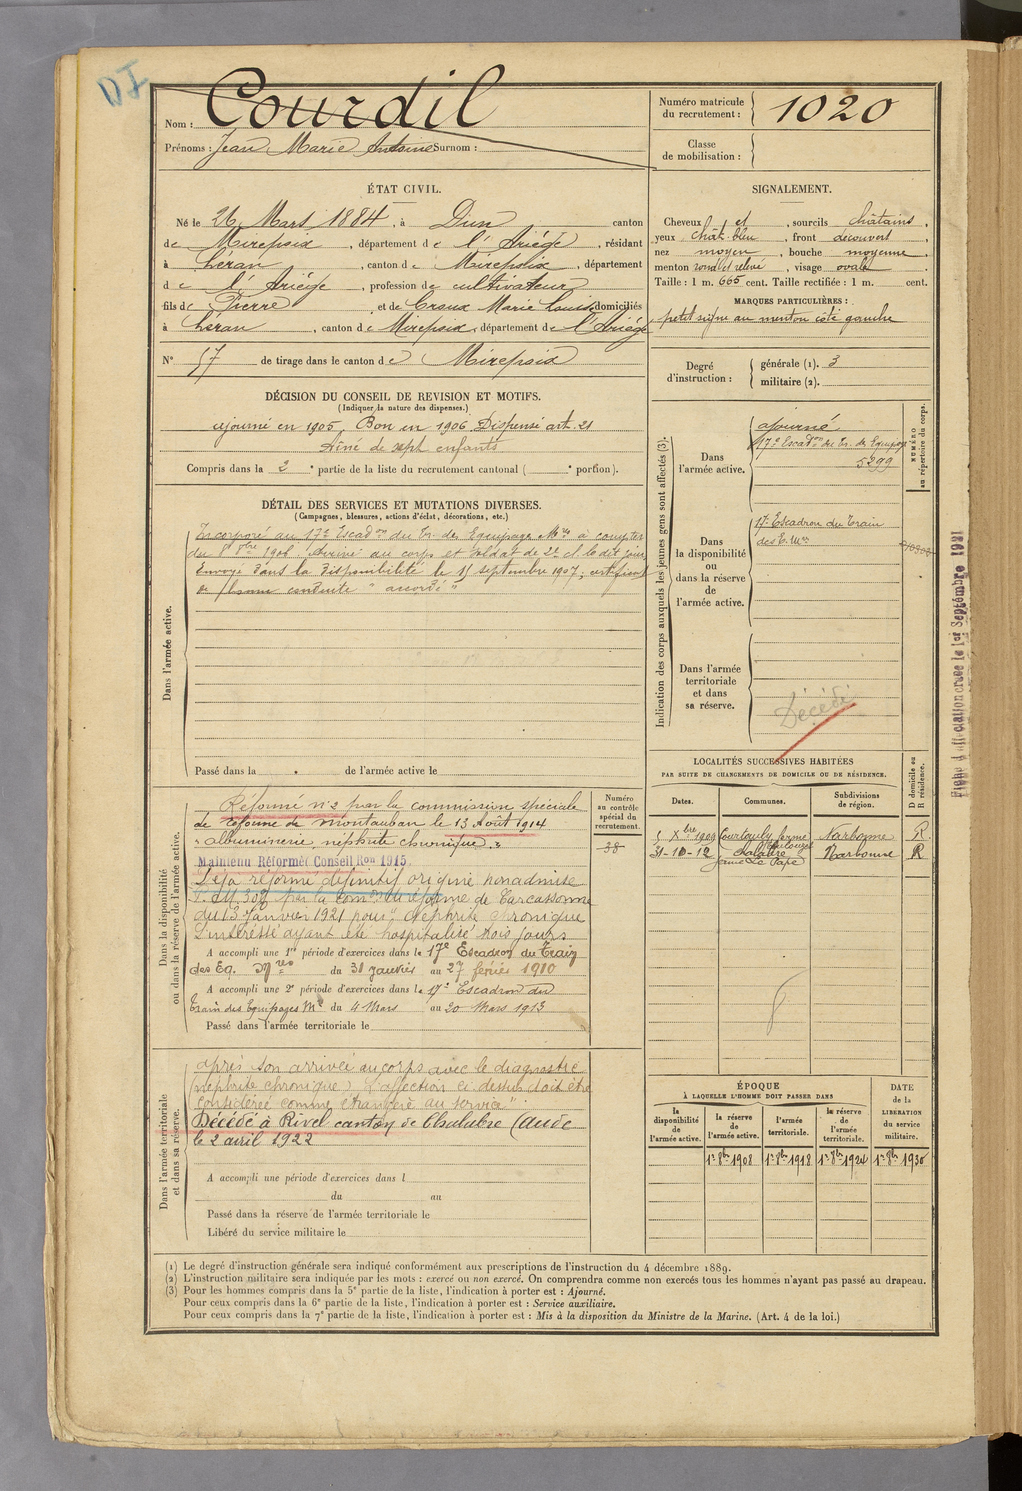 DI
Nom : Courdil
Prénoms : Jean Marie Antoine Surnom :
Numéro matricule du recrutement : 1020
Classe de mobilisation :
ÉTAT CIVIL.
Né le 26 Mars 1884, à Dun canton
de Mirepoix, département de l'Ariège, résidant
à Léran, canton de Mirepoix, département
de l'Ariège, profession de cultivateur
fils de Pierre et de Croux Marie Louise domiciliés
à Léran, canton de Mirepoix, département de l'Ariège
N° 57 de tirage dans le canton de Mirepoix
SIGNALEMENT.
Cheveux et, sourcils châtains,
yeux chât. bleu, front découvert,
nez moyen, bouche moyenne,
menton rond et relevé, visage ovale
Taille : 1 m. 665 cent. Taille rectifiée : 1 m. cent.
MARQUES PARTICULIÈRES :
petit signe au menton côté gauche
Degré d'instruction : générale (1). 3
militaire (2).
DÉCISION DU CONSEIL DE REVISION ET MOTIFS.
(Indiquer la nature des dispenses.)
ajourné en 1905. Bon en 1906 Dispensé art. 21
Aîné de sept enfants
Compris dans la 2e partie de la liste du recrutement cantonal ( e portion).
DÉTAIL DES SERVICES ET MUTATIONS DIVERSES.
(Campagnes, blessures, actions d'éclat, décorations, etc.)
Dans l'armée active.
Incorporé au 17e Escadon du Tr. des Equipages Mres à compter
du 8 8bre 1906 Arrivé au corps et soldat de 2e cl. le dit jour
Envoyé dans la disponibilité le 15 septembre 1907; certificat
de bonne conduite "accordé"
Passé dans la . de l'armée active le
Indication des corps auxquels les jeunes gens sont affectés (3).
NUMÉRO au répertoire du corps.
Dans l'armée active.
ajourné
17e Escadon du Tr. des Equipages
5299
Dans la disponibilité ou dans la réserve de l'armée active.
17e Escadron du Train
des E. Mres
Dans l'armée territoriale et dans sa réserve.
Décédé
Fiche d'affectation créée le 1er Septembre 1921
LOCALITÉS SUCCESSIVES HABITÉES
PAR SUITE DE CHANGEMENTS DE DOMICILE OU DE RÉSIDENCE.
D domicile ou R résidence.
Dates. Communes. Subdivisions de région.
5 Xbre 1909 Courtauly ferme Toulouzet Narbonne R.
31-10-12 Chalabre ferme Le Pape Narbonne R
Dans la disponibilité ou dans la réserve de l'armée active.
Numéro au contrôle spécial du recrutement.
38
Réformé n°2 par la commission spéciale
de réforme de Montauban le 13 Août 1914
"albuminerie néphrite chronique."
Maintenu Réformé Conseil Ron 1915
Déjà réformé définitif origine non admise
par la comon de réforme de Carcassonne
du 13 Janvier 1921 pour "Néphrite chronique
L'intéressé ayant été hospitalisé trois jours
A accompli une 1re période d'exercices dans le 17e Escadron du Train
des Eq. Mres du 31 janvier au 27 février 1910
A accompli une 2e période d'exercices dans le 17e Escadron du
Train des Equipages Mre du 4 Mars au 20 Mars 1913
Passé dans l'armée territoriale le
Dans l'armée territoriale et dans sa réserve.
après son arrivée au corps avec le diagnostic
(néphrite chronique) L'affection ci-dessus doit être
considérée comme étrangère au service"
Décédé à Rivel canton de Chalabre (Aude
le 2 avril 1922
A accompli une période d'exercices dans l
du au
Passé dans la réserve de l'armée territoriale le
Libéré du service militaire le
ÉPOQUE
À LAQUELLE L'HOMME DOIT PASSER DANS
DATE de la LIBÉRATION du service militaire.
la disponibilité de l'armée active. la réserve de l'armée active. l'armée territoriale. la réserve de l'armée territoriale.
1er 8bre 1908 1er 8bre 1918 1er 8bre 1924 1er 8bre 1930
(1) Le degré d'instruction générale sera indiqué conformément aux prescriptions de l'instruction du 4 décembre 1889.
(2) L'instruction militaire sera indiquée par les mots : exercé ou non exercé. On comprendra comme non exercés tous les hommes n'ayant pas passé au drapeau.
(3) Pour les hommes compris dans la 5e partie de la liste, l'indication à porter est : Ajourné.
Pour ceux compris dans la 6e partie de la liste, l'indication à porter est : Service auxiliaire.
Pour ceux compris dans la 7e partie de la liste, l'indication à porter est : Mis à la disposition du Ministre de la Marine. (Art. 4 de la loi.)